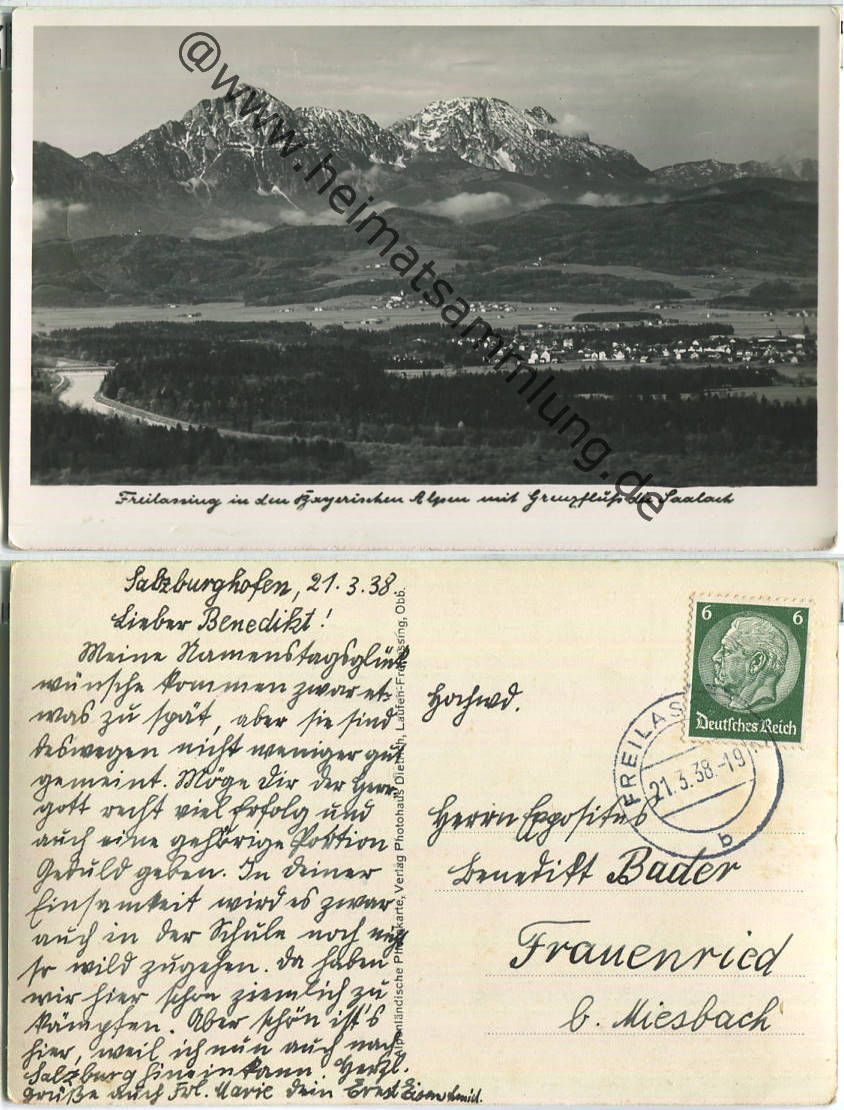 @www.heimatsammlung.de
Freilassing in den Bayerischen Alpen mit Grenzfluß der Saalach
Salzburghofen, 21.3.38
Lieber Benedikt!
Meine Namenstagsglück
wünsche kommen zwar et-
was zu spät, aber sie sind
deswegen nicht weniger gut
gemeint. Möge Dir der Herr-
gott recht viel Erfolg und
auch eine gehörige Portion
Geduld geben. In deiner
Einsamkeit wird es zwar
auch in der Schule noch nicht
so wild zugehen. Da haben
wir hier schon ziemlich zu
kämpfen. Aber schön ist's
hier, weil ich nun auch nach
Salzburg hinein kann. Herzl.
Grüße auch Frl. Marie dein Ernst
Alpenländische Photokarte, Verlag Photohaus Dietrich, Laufen-Freilassing, Obb.
6 6
Deutsches Reich
FREILAS
21.3.38.-19
b
Hochwd.
Herrn Expositus
Benedikt Bader
Frauenried
b. Miesbach